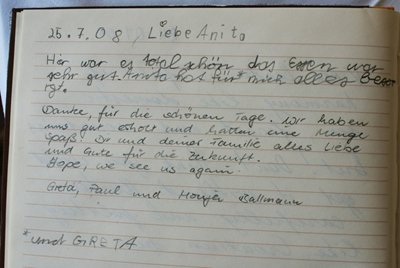 25.7.08, Liebe Anita
Hir war es total schön das Essen war
sehr gut Anita hat für* mich alles besor
rgt.
Danke, für die schönen Tage. Wir haben
uns gut erholt und hatten eine Menge
Spaß. Dir und deiner Familie alles Liebe
und Gute für die Zukunft.
Hope, we see us again.
Greta, Paul und Ballmann
*und GRETA